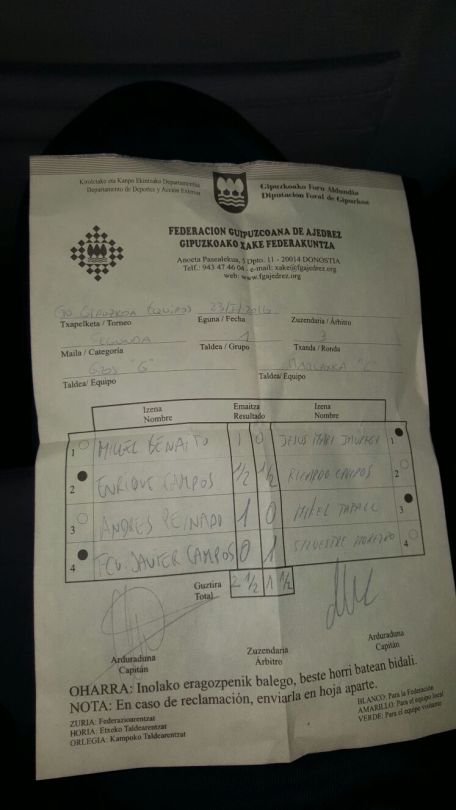 Kiroletako eta Kanpo Ekintzako Departamentua
Departamento de Deportes y Acción Exterior
Gipuzkoako Foru Aldundia
Diputación Foral de Gipuzkoa
FEDERACION GUIPUZCOANA DE AJEDREZ
GIPUZKOAKO XAKE FEDERAKUNTZA
Anoeta Pasealekua, 5 Dpto. 11 - 20014 DONOSTIA
Telf.: 943 47 46 04 - e-mail: xake@fgajedrez.org
web: www.fgajedrez.org
GIPUZKOA EQUIPOS 23/I/2016
Txapelketa / Torneo Eguna / Fecha Zuzendaria / Árbitro
SEGUNDA 1 3
Maila / Categoria Taldea / Grupo Txanda / Ronda
GROS "G"
Taldea/ Equipo Taldea/ Equipo
Izena Emaitza Izena
Nombre Resultado Nombre
1 MIKEL BENAITO 1 0 JESUS MARI 1
2 ENRIQUE CAMPOS 1/2 1/2 RICARDO CAMPOS 2
3 ANDRES PEINADO 1 0 MIKEL 3
4 FCO. JAVIER CAMPOS 0 1 SILVESTRE 4
Guztira
Total 2 1/2 1 1/2
Arduraduna Zuzendaria Arduraduna
Capitán Árbitro Capitán
OHARRA: Inolako eragozpenik balego, beste horri batean bidali.
NOTA: En caso de reclamación, enviarla en hoja aparte.
ZURIA: Federazioarentzat
HORIA: Etxeko Taldearentzat
ORLEGIA: Kampoko Taldearentzat
BLANCO: Para la Federación
AMARILLO: Para el equipo local
VERDE: Para el equipo visitante